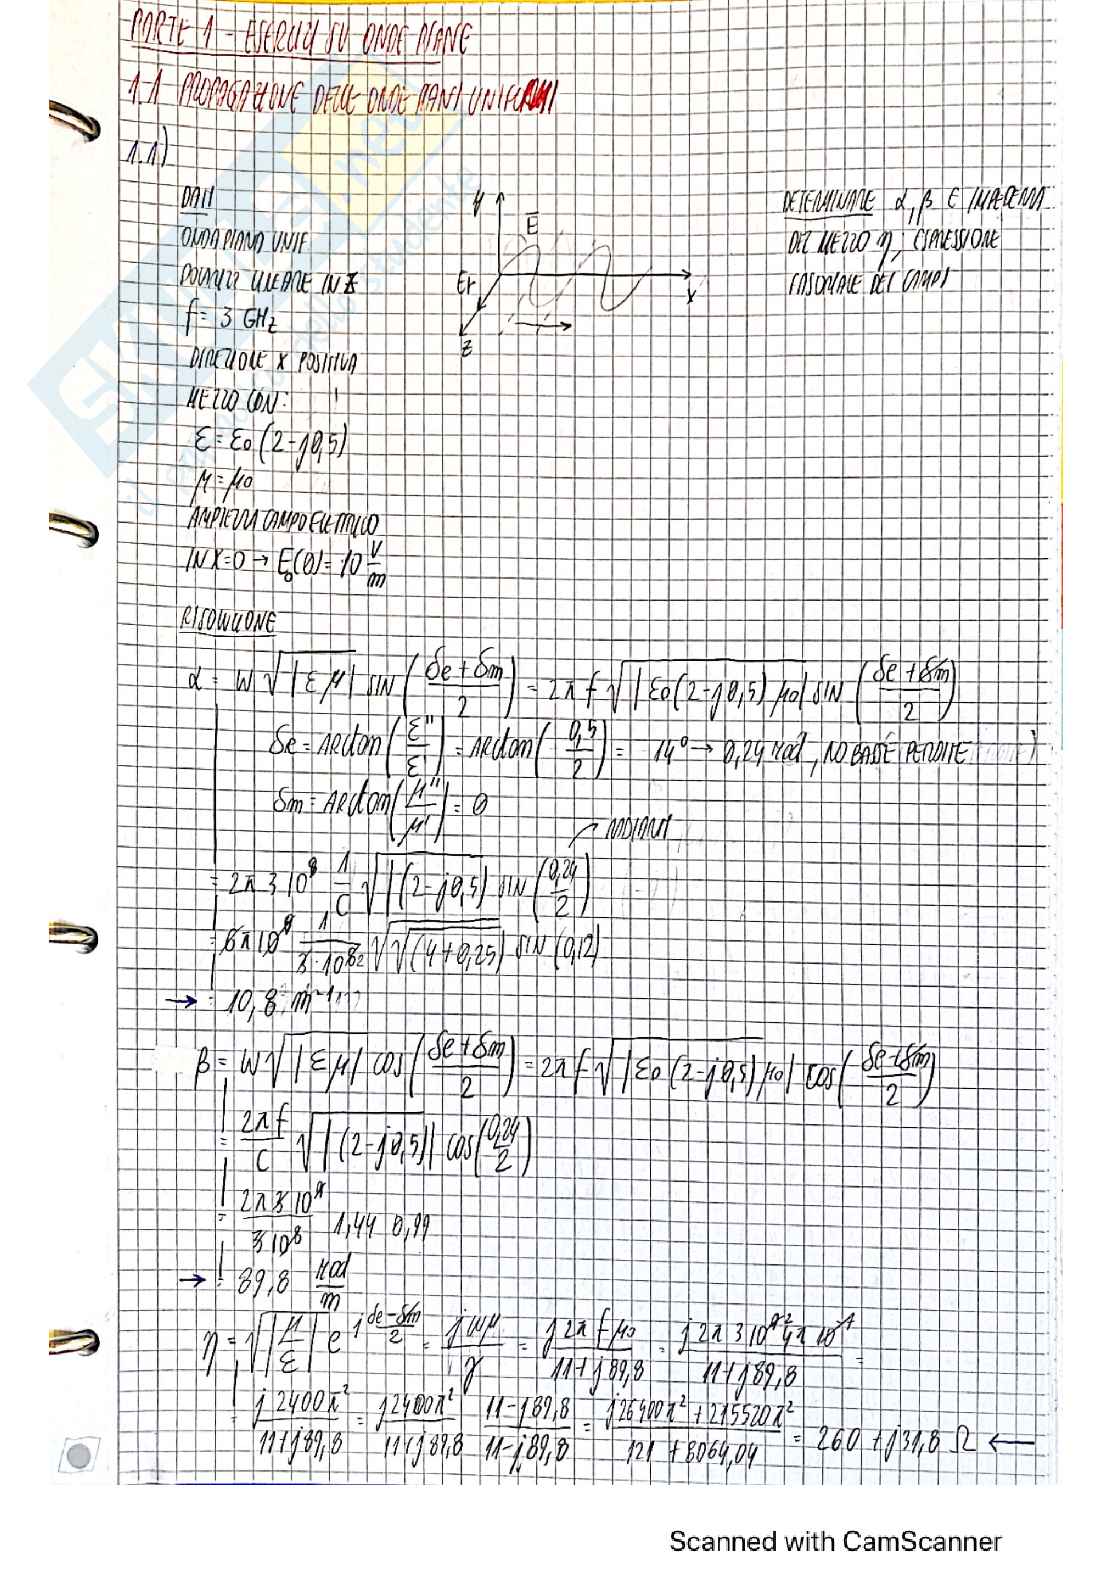 PARTE 1 - ESERCIZI SU ONDE PIANE
1.1 PROPAGAZIONE DELLE ONDE PIANE UNIFORMI
1.1)
DATI
ONDA PIANA UNIF
POLARIZZ LINEARE IN Z
f = 3 GHz
DIREZIONE X POSITIVA
MEZZO CON:
ε = ε0 (2-j0,5)
μ = μ0
AMPIEZZA CAMPO ELETTRICO
IN X=0 → E0(0) = 10 V/m
y
E
Er
x
z
DETERMINARE α, β E IMPEDENZA
DEL MEZZO η, ESPRESSIONE
FASORIALE DEI CAMPI
RISOLUZIONE
α = W √|εμ| SIN ((δe+δm)/2) = 2π f √|ε0(2-j0,5) μ0| SIN ((δe+δm)/2)
δe = ARCtan(ε''/ε') = ARCtan(0,5/2) = 14° → 0,24 rad, NO BASSE PERDITE
δm = ARCtan(μ''/μ') = 0
RADIANTI
= 2π 3 10^9 1/C √|(2-j0,5)| SIN (0,24/2)
= 6π 10^9 1/(3·10^8) √√(4+0,25) SIN (0,12)
→ = 10,8 m^-1
β = W √|εμ| COS((δe+δm)/2) = 2π f √|ε0 (2-j0,5) μ0| COS((δe+δm)/2)
= 2πf/C √|(2-j0,5)| COS(0,24/2)
= 2π 3 10^9/3 10^8 1,44 0,99
→ = 89,8 rad/m
η = √|μ/ε| e^j(δe-δm)/2 = jωμ/γ = j2π f μ0/(11+j89,8) = j2π 3 10^9 4π 10^-7/(11+j89,8) =
= j2400π²/(11+j89,8) = j2400π²/(11+j89,8) (11-j89,8)/(11-j89,8) = (j26400π² + 215520π²)/(121 + 8064,04) = 260 + j31,8 Ω ←
Scanned with CamScanner